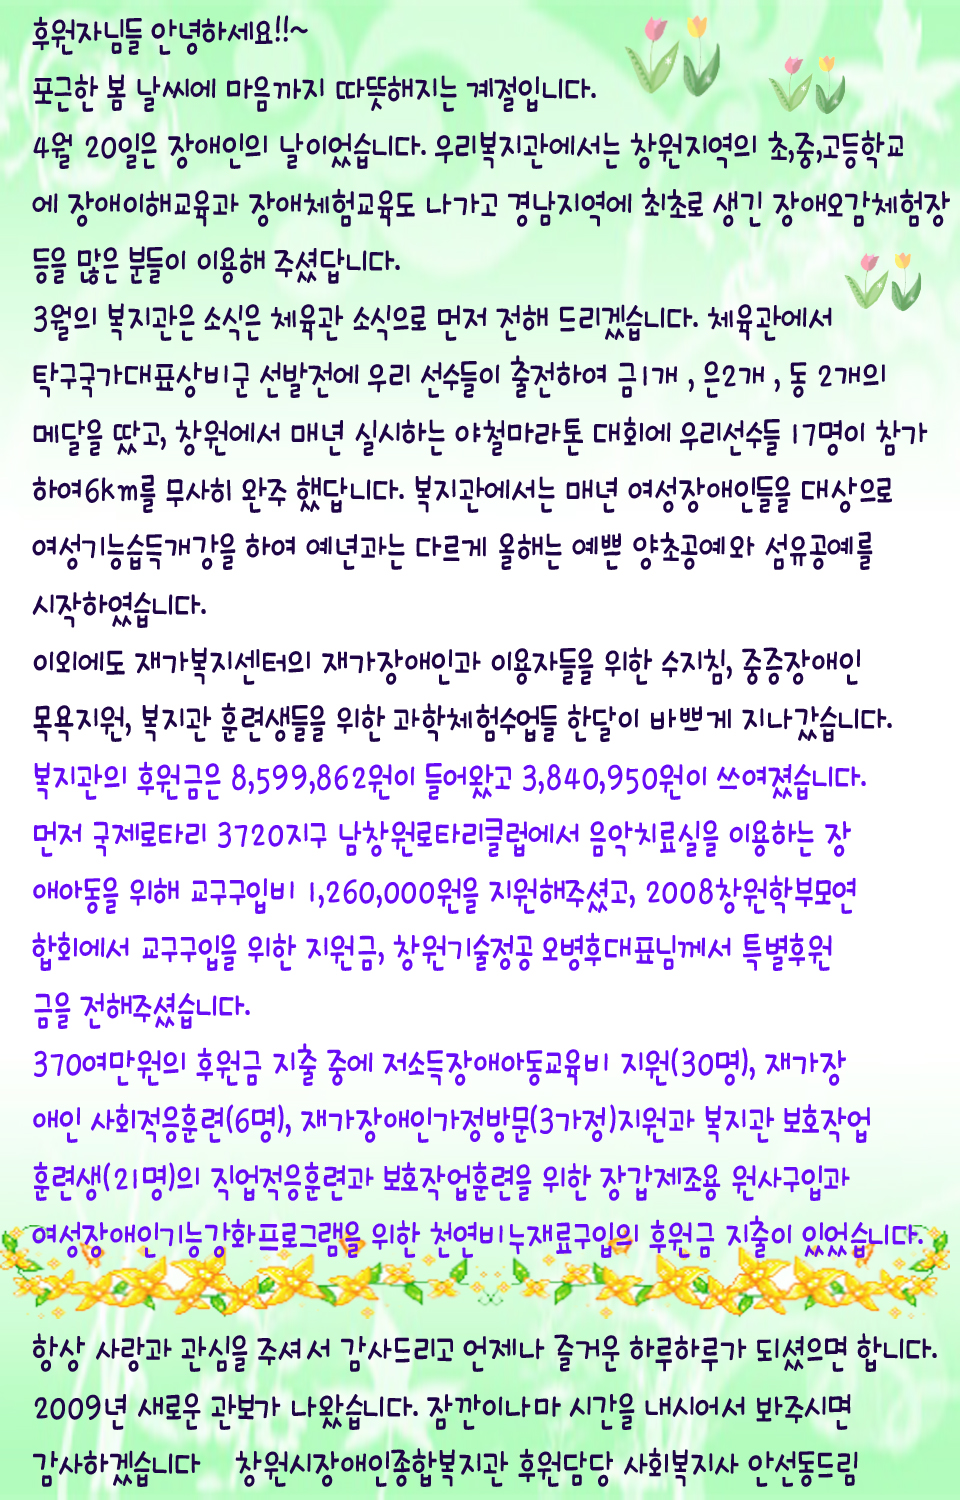 후원자님들 안녕하세요!!~
포근한 봄 날씨에 마음까지 따뜻해지는 계절입니다.
4월 20일은 장애인의 날이었습니다. 우리복지관에서는 창원지역의 초,중,고등학교
에 장애이해교육과 장애체험교육도 나가고 경남지역에 최초로 생긴 장애오감체험장
등을 많은 분들이 이용해 주셨답니다.
3월의 복지관은 소식은 체육관 소식으로 먼저 전해 드리겠습니다. 체육관에서
탁구국가대표상비군 선발전에 우리 선수들이 출전하여 금1개 , 은2개 , 동 2개의
메달을 땄고, 창원에서 매년 실시하는 야철마라톤 대회에 우리선수들 17명이 참가
하여6km를 무사히 완주 했답니다. 복지관에서는 매년 여성장애인들을 대상으로
여성기능습득개강을 하여 예년과는 다르게 올해는 예쁜 양초공예와 섬유공예를
시작하였습니다.
이외에도 재가복지센터의 재가장애인과 이용자들을 위한 수지침, 중증장애인
목욕지원, 복지관 훈련생들을 위한 과학체험수업들 한달이 바쁘게 지나갔습니다.
복지관의 후원금은 8,599,862원이 들어왔고 3,840,950원이 쓰여졌습니다.
먼저 국제로타리 3720지구 남창원로타리클럽에서 음악치료실을 이용하는 장
애아동을 위해 교구구입비 1,260,000원을 지원해주셨고, 2008창원학부모연
합회에서 교구구입을 위한 지원금, 창원기술정공 오병후대표님께서 특별후원
금을 전해주셨습니다.
370여만원의 후원금 지출 중에 저소득장애아동교육비 지원(30명), 재가장
애인 사회적응훈련(6명), 재가장애인가정방문(3가정)지원과 복지관 보호작업
훈련생(21명)의 직업적응훈련과 보호작업훈련을 위한 장갑제조용 원사구입과
여성장애인기능강화프로그램을 위한 천연비누재료구입의 후원금 지출이 있었습니다.
항상 사랑과 관심을 주셔서 감사드리고 언제나 즐거운 하루하루가 되셨으면 합니다.
2009년 새로운 관보가 나왔습니다. 잠깐이나마 시간을 내시어서 봐주시면
감사하겠습니다 창원시장애인종합복지관 후원담당 사회복지사 안선동드림